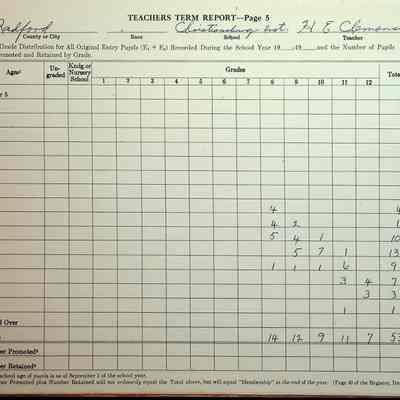 TEACHERS TERM REPORT—Page 5
Radford Christiansburg Inst. H E Clemons
County or City Race School Teacher
Grade Distribution for All Original Entry Pupils (E₁ + E₂) Recorded During the School Year 19 , 49 and the Number of Pupils
romoted and Retained by Grade.
Ages¹ Un-graded Kndg or Nursery School Grades Tota
1 2 3 4 5 6 7 8 9 10 11 12
r 5
4 4
4 2
5 4 1 10
5 7 1 13
1 1 1 6 9
3 4 7
3 3
1 1
d Over
14 12 9 11 7 53
ber Promoted²
ber Retained²
school age of pupils is as of September 1 of the school year.
ber Promoted plus Number Retained will not ordinarily equal the Total above, but will equal "Membership" at the end of the year. (Page 40 of the Register,